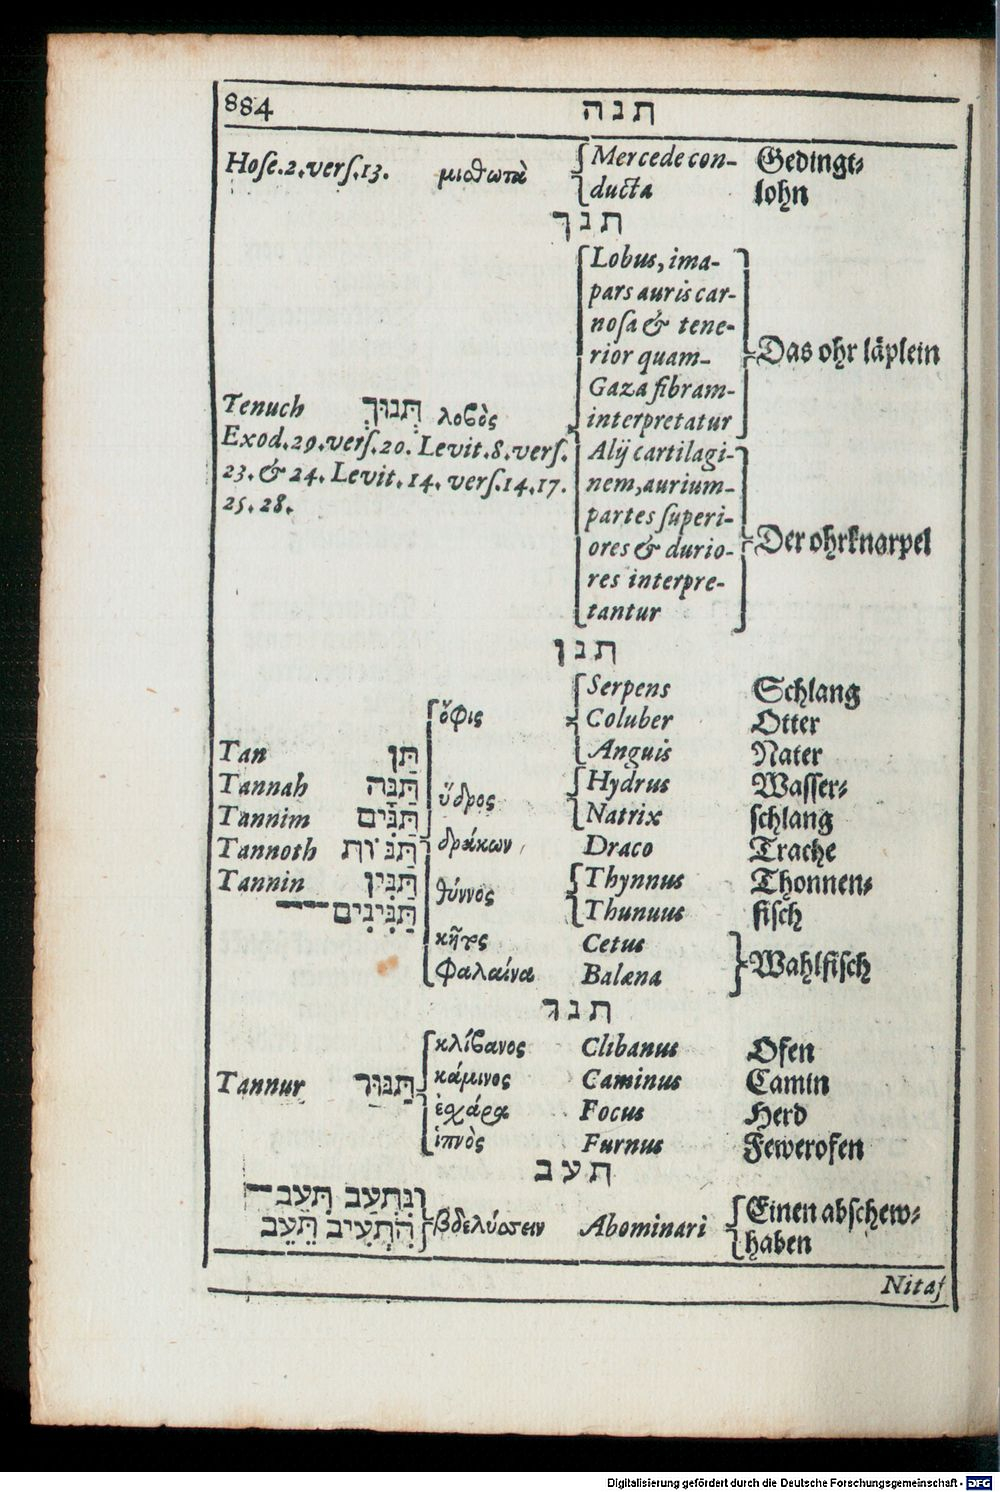 884 תנה
Hoſe.2.verſ.13. μισθωτὰ Mercede con- Gedingt-
ducta lohn
תנך
Lobus, ima-
pars auris car-
noſa & tene-
rior quam- Das ohr läplein
Gaza fibram-
Tenuch תְּנוּךְ λοβὸς interpretatur
Exod.29.verſ.20. Levit.8.verſ. Alij cartilagi-
23.& 24. Levit.14. verſ.14.17. nem, aurium-
25.28. partes ſuperi-
ores & durio- Der ohrknarpel
res interpre-
tantur
תנן
Serpens Schlang
ὄφις Coluber Otter
Tan תַּן Anguis Nater
Tannah תַּנָּה ὕδρος Hydrus Waſſer-
Tannim תַּנִּים Natrix ſchlang
Tannoth תַּנּוֹת δράκων Draco Trache
Tannin תַּנִּין θύννος Thynnus Thonnen-
תַּנִּינִים Thunuus fiſch
κῆτος Cetus
φαλαίνα Balæna Wahlfiſch
תנר
κλίβανος Clibanus Ofen
Tannur תַּנּוּר κάμινος Caminus Camin
ἐσχάρα Focus Herd
ἱπνὸς Furnus Fewerofen
תעב
תִּעֵב Einen abſchew-
הִתְעִיב תַּעֵב βδελύσσειν Abominari haben
Nitaſ
Digitalisierung gefördert durch die Deutsche Forschungsgemeinschaft - DFG